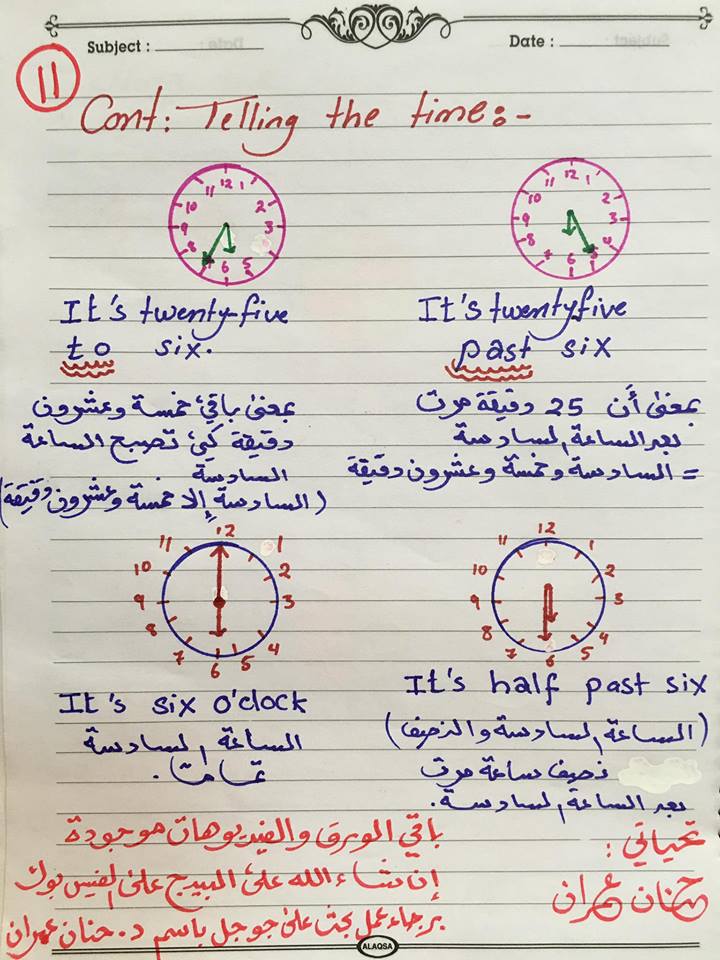 Subject :
Date :
11
Cont: Telling the time:-
12
1
2
3
4
5
6
7
8
9
10
11
It's twenty-five
to six.
بمعنى باقي خمسة وعشرون
دقيقة كي تصبح الساعة
السادسة
(السادسة إلا خمسة وعشرون دقيقة)
12
1
2
3
4
5
6
7
8
9
10
11
It's twenty five
past six
بمعنى أن 25 دقيقة مرت
بعد الساعة السادسة
= السادسة وخمسة وعشرون دقيقة
12
1
2
3
4
5
6
7
8
9
10
11
It's six o'clock
الساعة السادسة
تماماً.
12
1
2
3
4
5
6
7
8
9
10
11
It's half past six
(الساعة السادسة والنصف)
نصف ساعة مرت
بعد الساعة السادسة.
باقي الورق والفيديوهات موجودة
إن شاء الله على البيدج على الفيس بوك
برجاء عمل بحث على جوجل باسم د. حنان عمران
تحياتي :
حنان عمران
ALAQSA